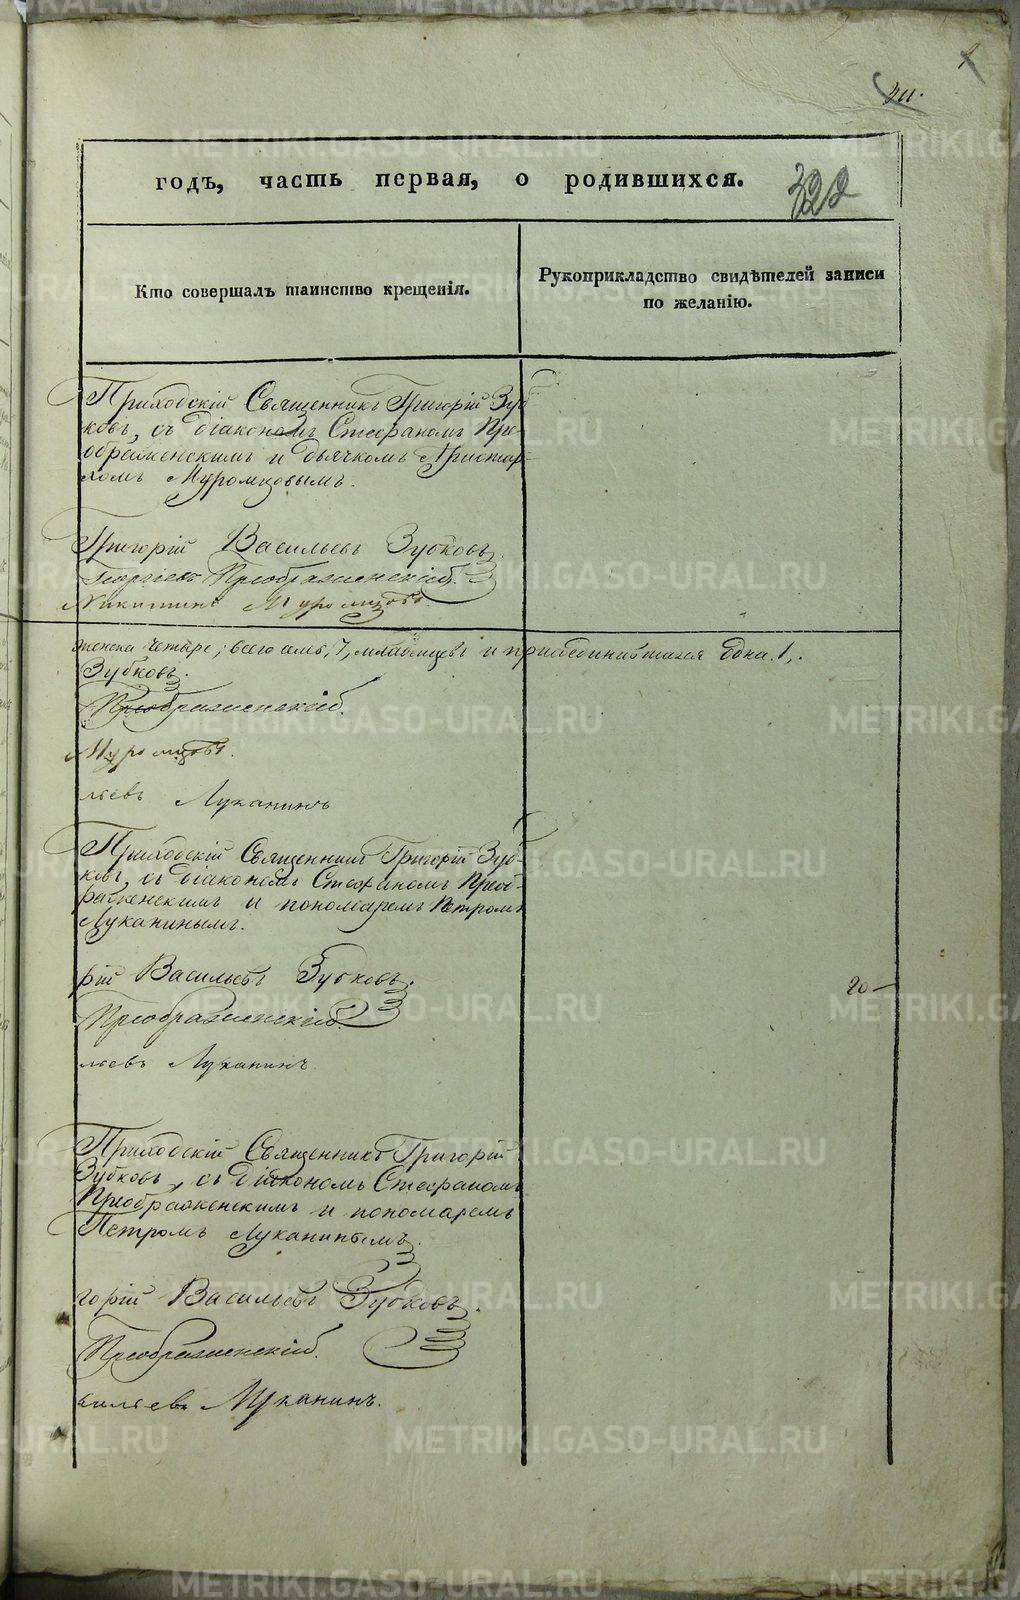 годъ, часть первая, о родившихся.
322
Кто совершалъ таинство крещенія.
Рукоприкладство свидѣтелей записи
по желанію.
Приходскій Священникъ Григорій Зуб-
ковъ, съ діакономъ Стефаномъ Пре-
ображенскимъ и дьячкомъ Аристар-
хомъ Муромцовымъ.
Григорій Васильевъ Зубковъ.
Георгіевъ Преображенскій.
Никитинъ Муромцовъ.
женска четыре; всего семь, 7, младенцевъ и присоединившаяся одна. 1,.
Зубковъ.
Преображенскій.
Муромцовъ.
льевъ Луканинъ
Приходскій Священникъ Григорій Зуб-
ковъ, съ діакономъ Стефаномъ Преоб-
раженскимъ и пономаремъ Петромъ
Луканинымъ.
рій Васильевъ Зубковъ.
20
Преображенскій.
льевъ Луканинъ
Приходскій Священникъ Григорій
Зубковъ, съ діакономъ Стефаномъ
Преображенскимъ и пономаремъ
Петромъ Луканинымъ.
горій Васильевъ Зубковъ.
Преображенскій.
сильевъ Луканинъ.
METRIKI.GASO-URAL.RU